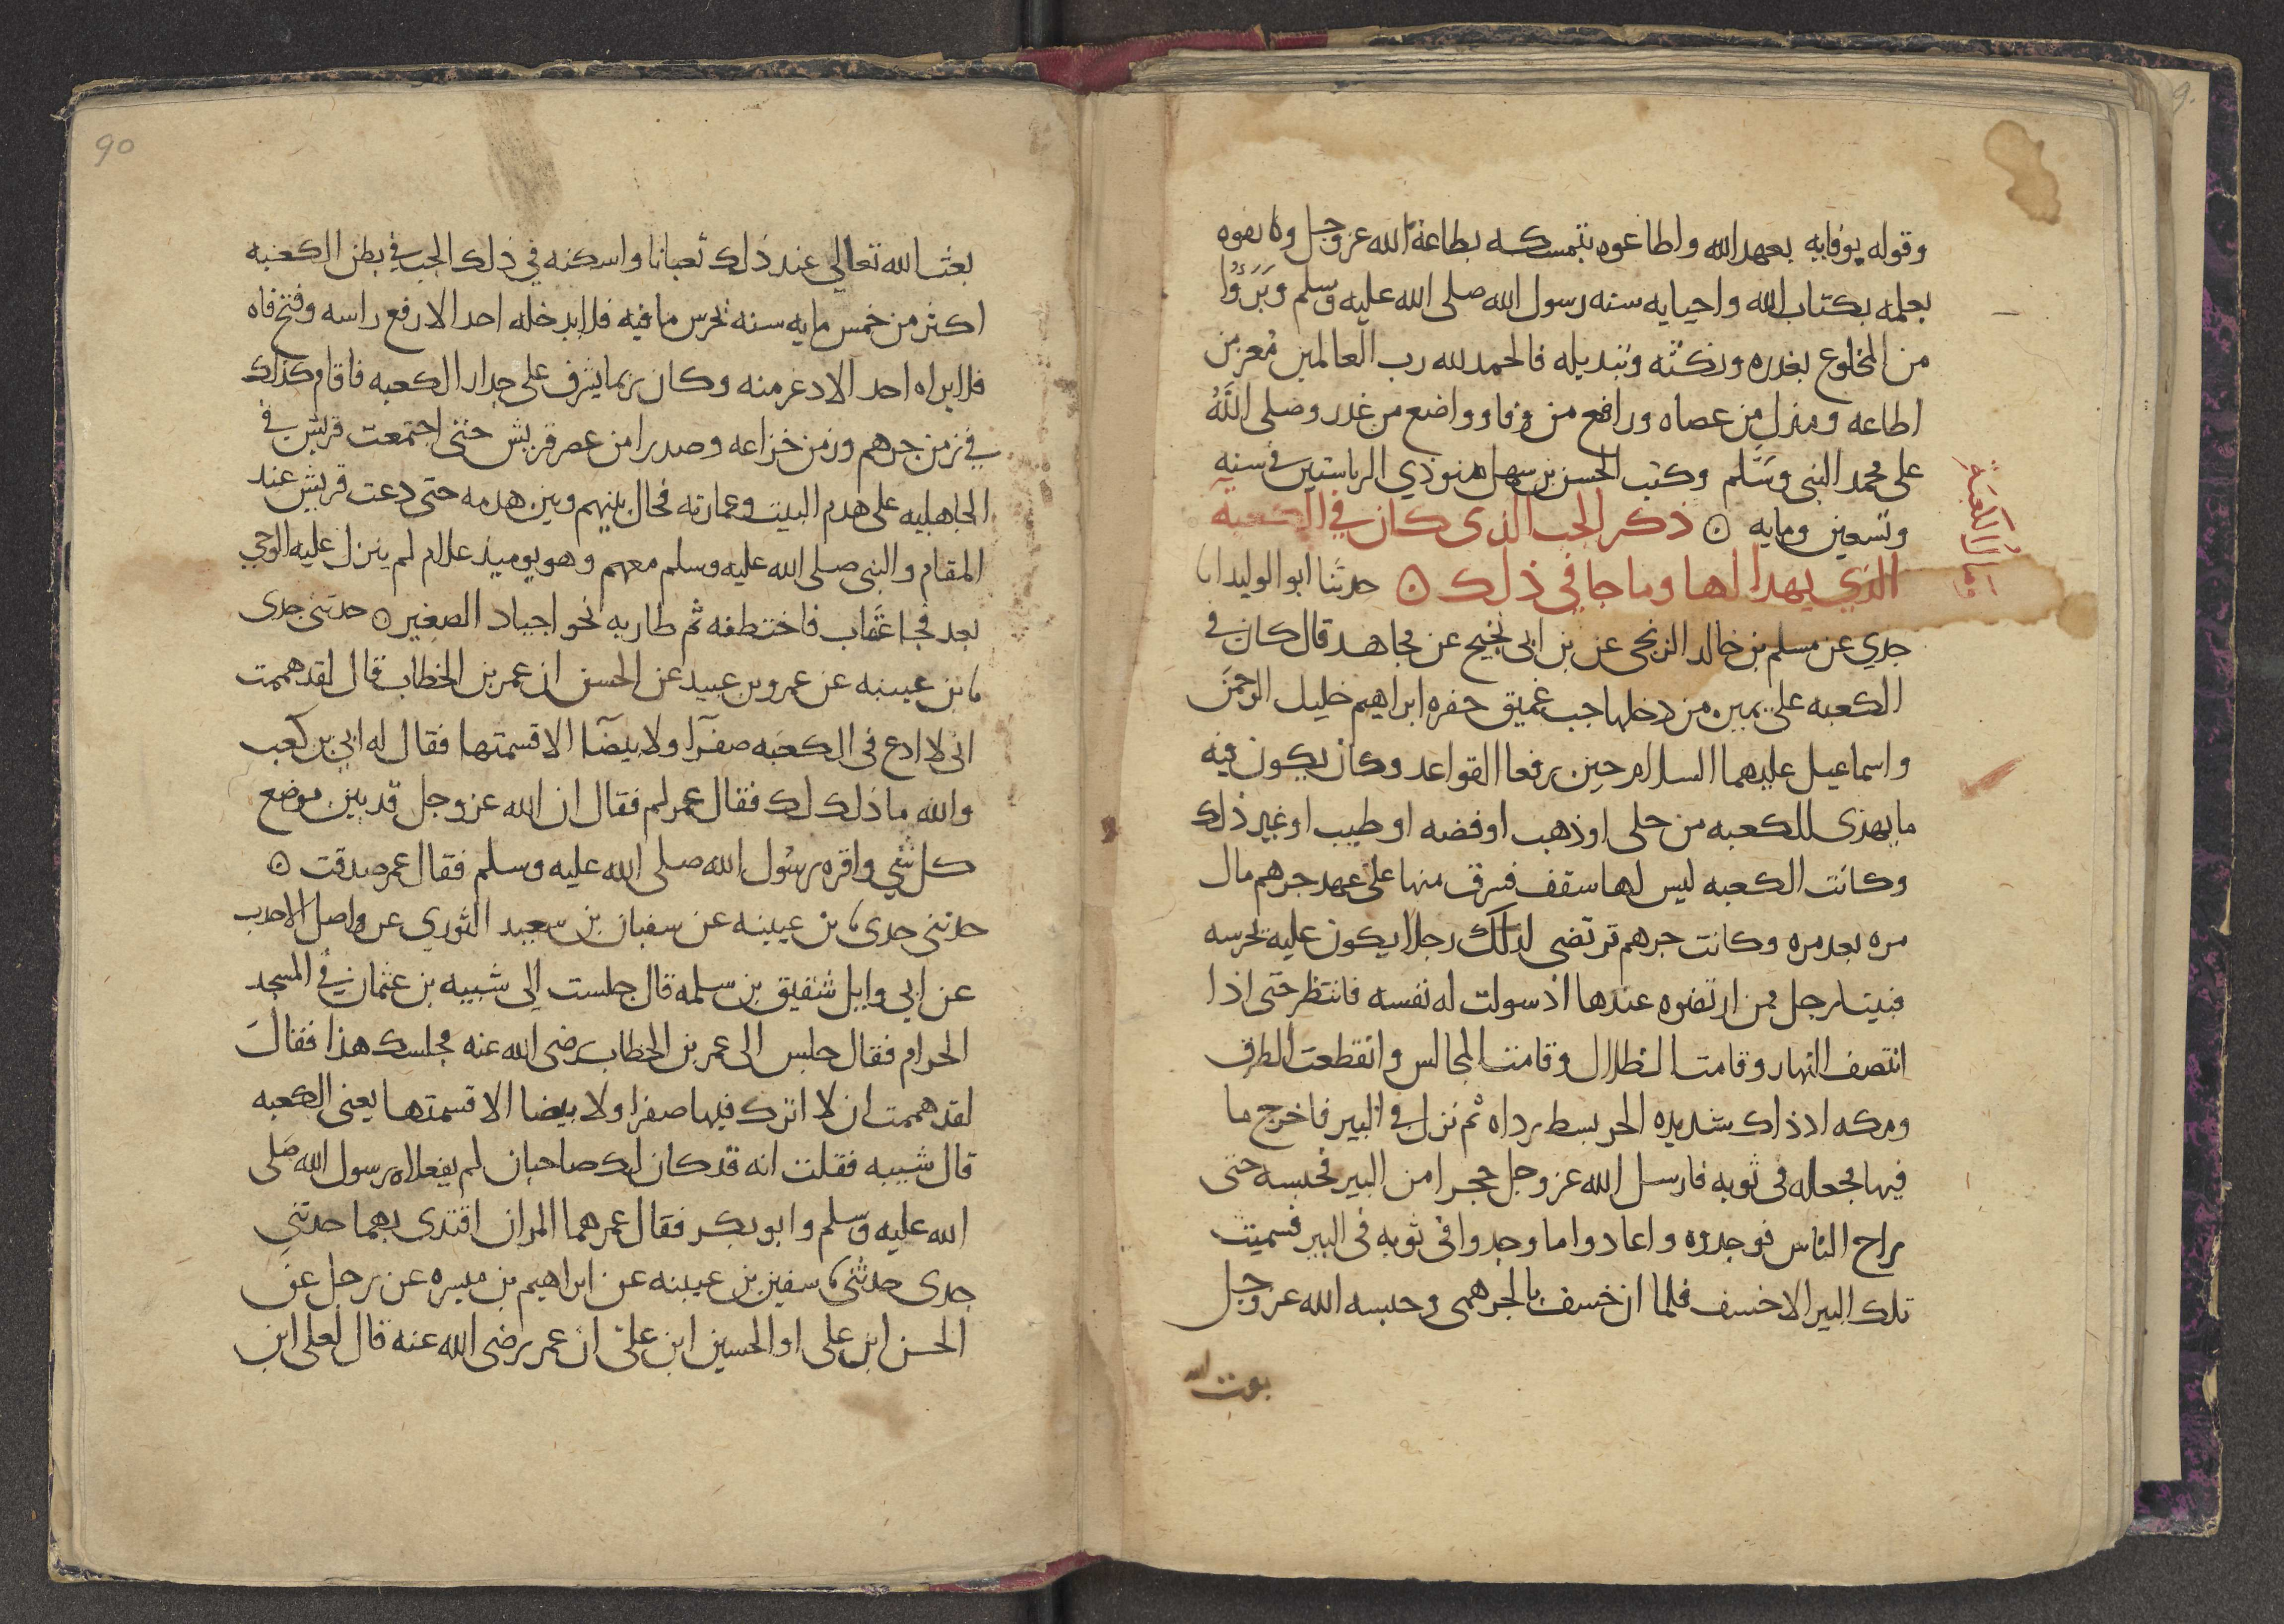 وقوله بوفايه بعهد الله واطاعوه بتمسكه بطاعة الله عز وجل و
بعلمه بكتاب الله واحيايه سنه رسول الله صلى الله عليه وسلم وبروا
من المخلوع بغدره ونكثه وتبديله فالحمد لله رب العالمين معز من
اطاعه ومذل من عصاه ورافع من وفا وواضع من غدر وصلى الله
على محمد النبي وسلم وكتب الحسن بن سهل صنو ذي الرياستين في سنه
وتسعين ومايه ۞ ذكر الجب الذي كان في الكعبة
الكعبة
الذي يهدا لها وما جا في ذلك ۞ حدثنا ابو الوليد انا
جدي عن مسلم بن خالد الزنجي عن بن ابي نجيح عن مجاهد قال كان في
الكعبه على يمين من دخلها جب عميق حفره ابراهيم خليل الرحمن
واسماعيل عليهما السلام حين رفعا القواعد وكان يكون فيه
ما يهدى للكعبه من حلى او ذهب او فضه او طيب او غير ذلك
وكانت الكعبه ليس لها سقف فسرق منها على عهد جرهم مال
مره بعد مره وكانت جرهم ترتضي لذلك رجلا يكون عليه يحرسه
فبينا رجل ممن ارتضوه عندها اذ سولت له نفسه فانتظر حتى اذا
انتصف النهار وقامت الظلال وقامت المجالس وانقطعت الطرق
ومكه اذ ذاك شديده الحر بسط رداه ثم نزل في البير فاخرج ما
فيها فجعله في ثوبه فارسل الله عز وجل حجرا من البير فحبسه حتى
راح الناس فوجدوه واعادوا ما وجدوا في ثوبه في البير فسميت
تلك البير الاخسف فلما ان خسف بالجرهمي وحبسه الله عز وجل
بعث الله
90
بعث الله تعالى عند ذلك ثعبانا واسكنه في ذلك الجب في بطن الكعبه
اكثر من خمس مايه سنه يحرس ما فيه فلا يدخله احد الا رفع راسه وفتح فاه
فلا يراه احد الا ذعر منه وكان ربما يشرف على جدار الكعبه فاقام كذلك
في زمن جرهم وزمن خزاعه وصدرا من عصر قريش حتى اجتمعت قريش في
الجاهليه على هدم البيت وعمارته فحال بينهم وبين هدمه حتى دعت قريش عند
المقام والنبي صلى الله عليه وسلم معهم وهو يوميذ غلام لم ينزل عليه الوحي
بعد فجا عقاب فاختطفه ثم طار به نحو اجياد الصغير ۞ حدثني جدي
نا بن عيينه عن عمرو بن عبيد عن الحسن ان عمر بن الخطاب قال لقد هممت
اني لا ادع في الكعبه صفرآ ولا بيضآ الا قسمتها فقال له ابي بن كعب
والله ما ذلك لك فقال عمر لم فقال ان الله عز وجل قد بين موضع
كل شي واقره رسول الله صلى الله عليه وسلم فقال عمر صدقت ۞
حدثني جدي نا بن عيينه عن سفيان بن سعيد الثوري عن واصل الاحدب
عن ابي وايل شقيق بن سلمه قال جلست الى شيبه بن عثمان في المسجد
الحرام فقال جلس الى عمر بن الخطاب رضى الله عنه مجلسك هذا فقال
لقد هممت ان لا اترك فيها صفرا ولا بيضا الا قسمتها يعني الكعبه
قال شيبه فقلت انه قد كان لك صاحبان لم يفعلاه رسول الله صلى
الله عليه وسلم وابو بكر فقال عمر هما المران اقتدي بهما حدثني
جدي حدثني نا سفين بن عيينه عن ابراهيم بن ميسره عن رجل عن
الحسن ابن علي او الحسين ابن علي ان عمر رضى الله عنه قال لعلي ابن